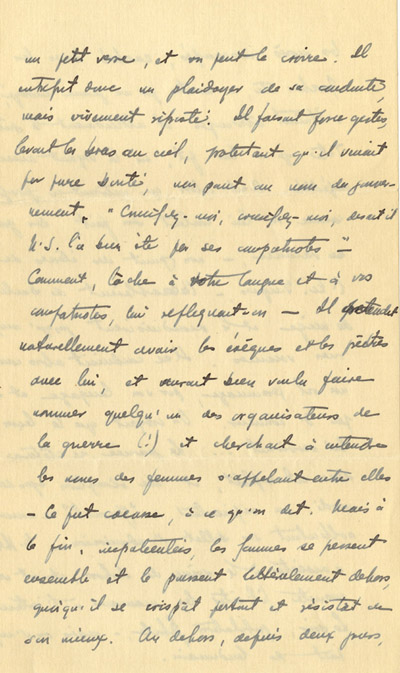 un petit verre, et on peut le croire. Il
entreprit donc un plaidoyer de sa conduite,
mais vivement riposté. Il faisait force gestes,
levant les bras au ciel, protestant qu'il venait
par pure bonté, non point au nom du gouver-
nement. "Crucifiez-moi, crucifiez-moi, disait-il
N.S. l'a bien été par ses compatriotes" –
Comment, lâche à votre langue et à vos
compatriotes, lui répliquait-on – Il prétendait
naturellement avoir les évêques et les prêtres
avec lui, et aurait bien voulu faire
nommer quelqu'un des organisateurs de
la guerre (!) et cherchait à entendre
les noms des femmes s'appelant entre elles
– Ce fut cocasse, à ce qu'on dit. Mais à
la fin, impatientées, les femmes se pressent
ensemble et le poussent littéralement dehors,
quoiqu'il se crispât partout et résistât de
son mieux. Au dehors, depuis deux jours,